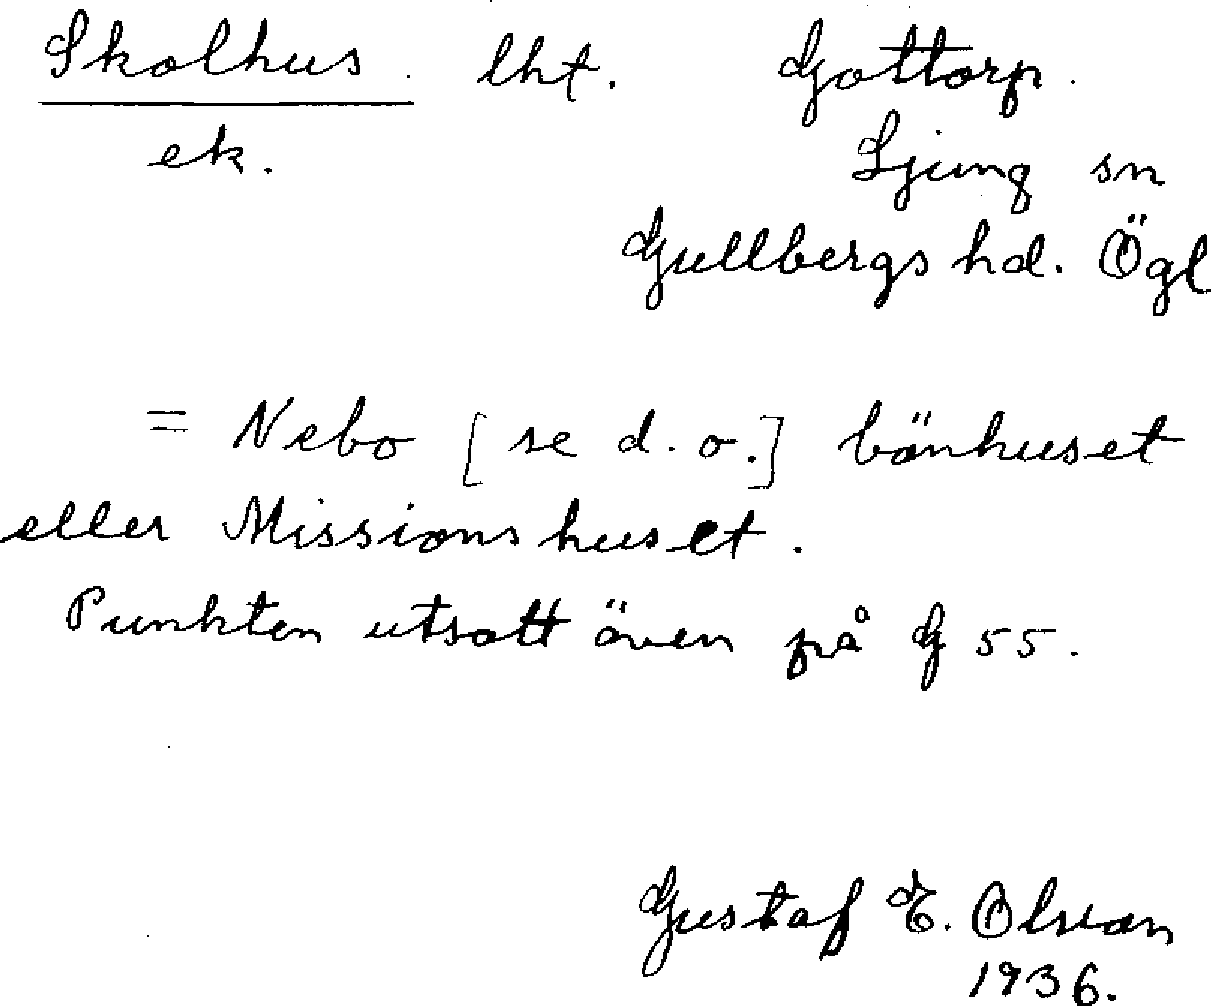 Skolhus lht. Gottorp.
ek. Ljung sn
Gullbergs hd. Ögl
= Nebo [se d.o.] bönhuset
eller Missionshuset.
Punkten utsatt även på G 55.
Gustaf E. Olsson
1936.